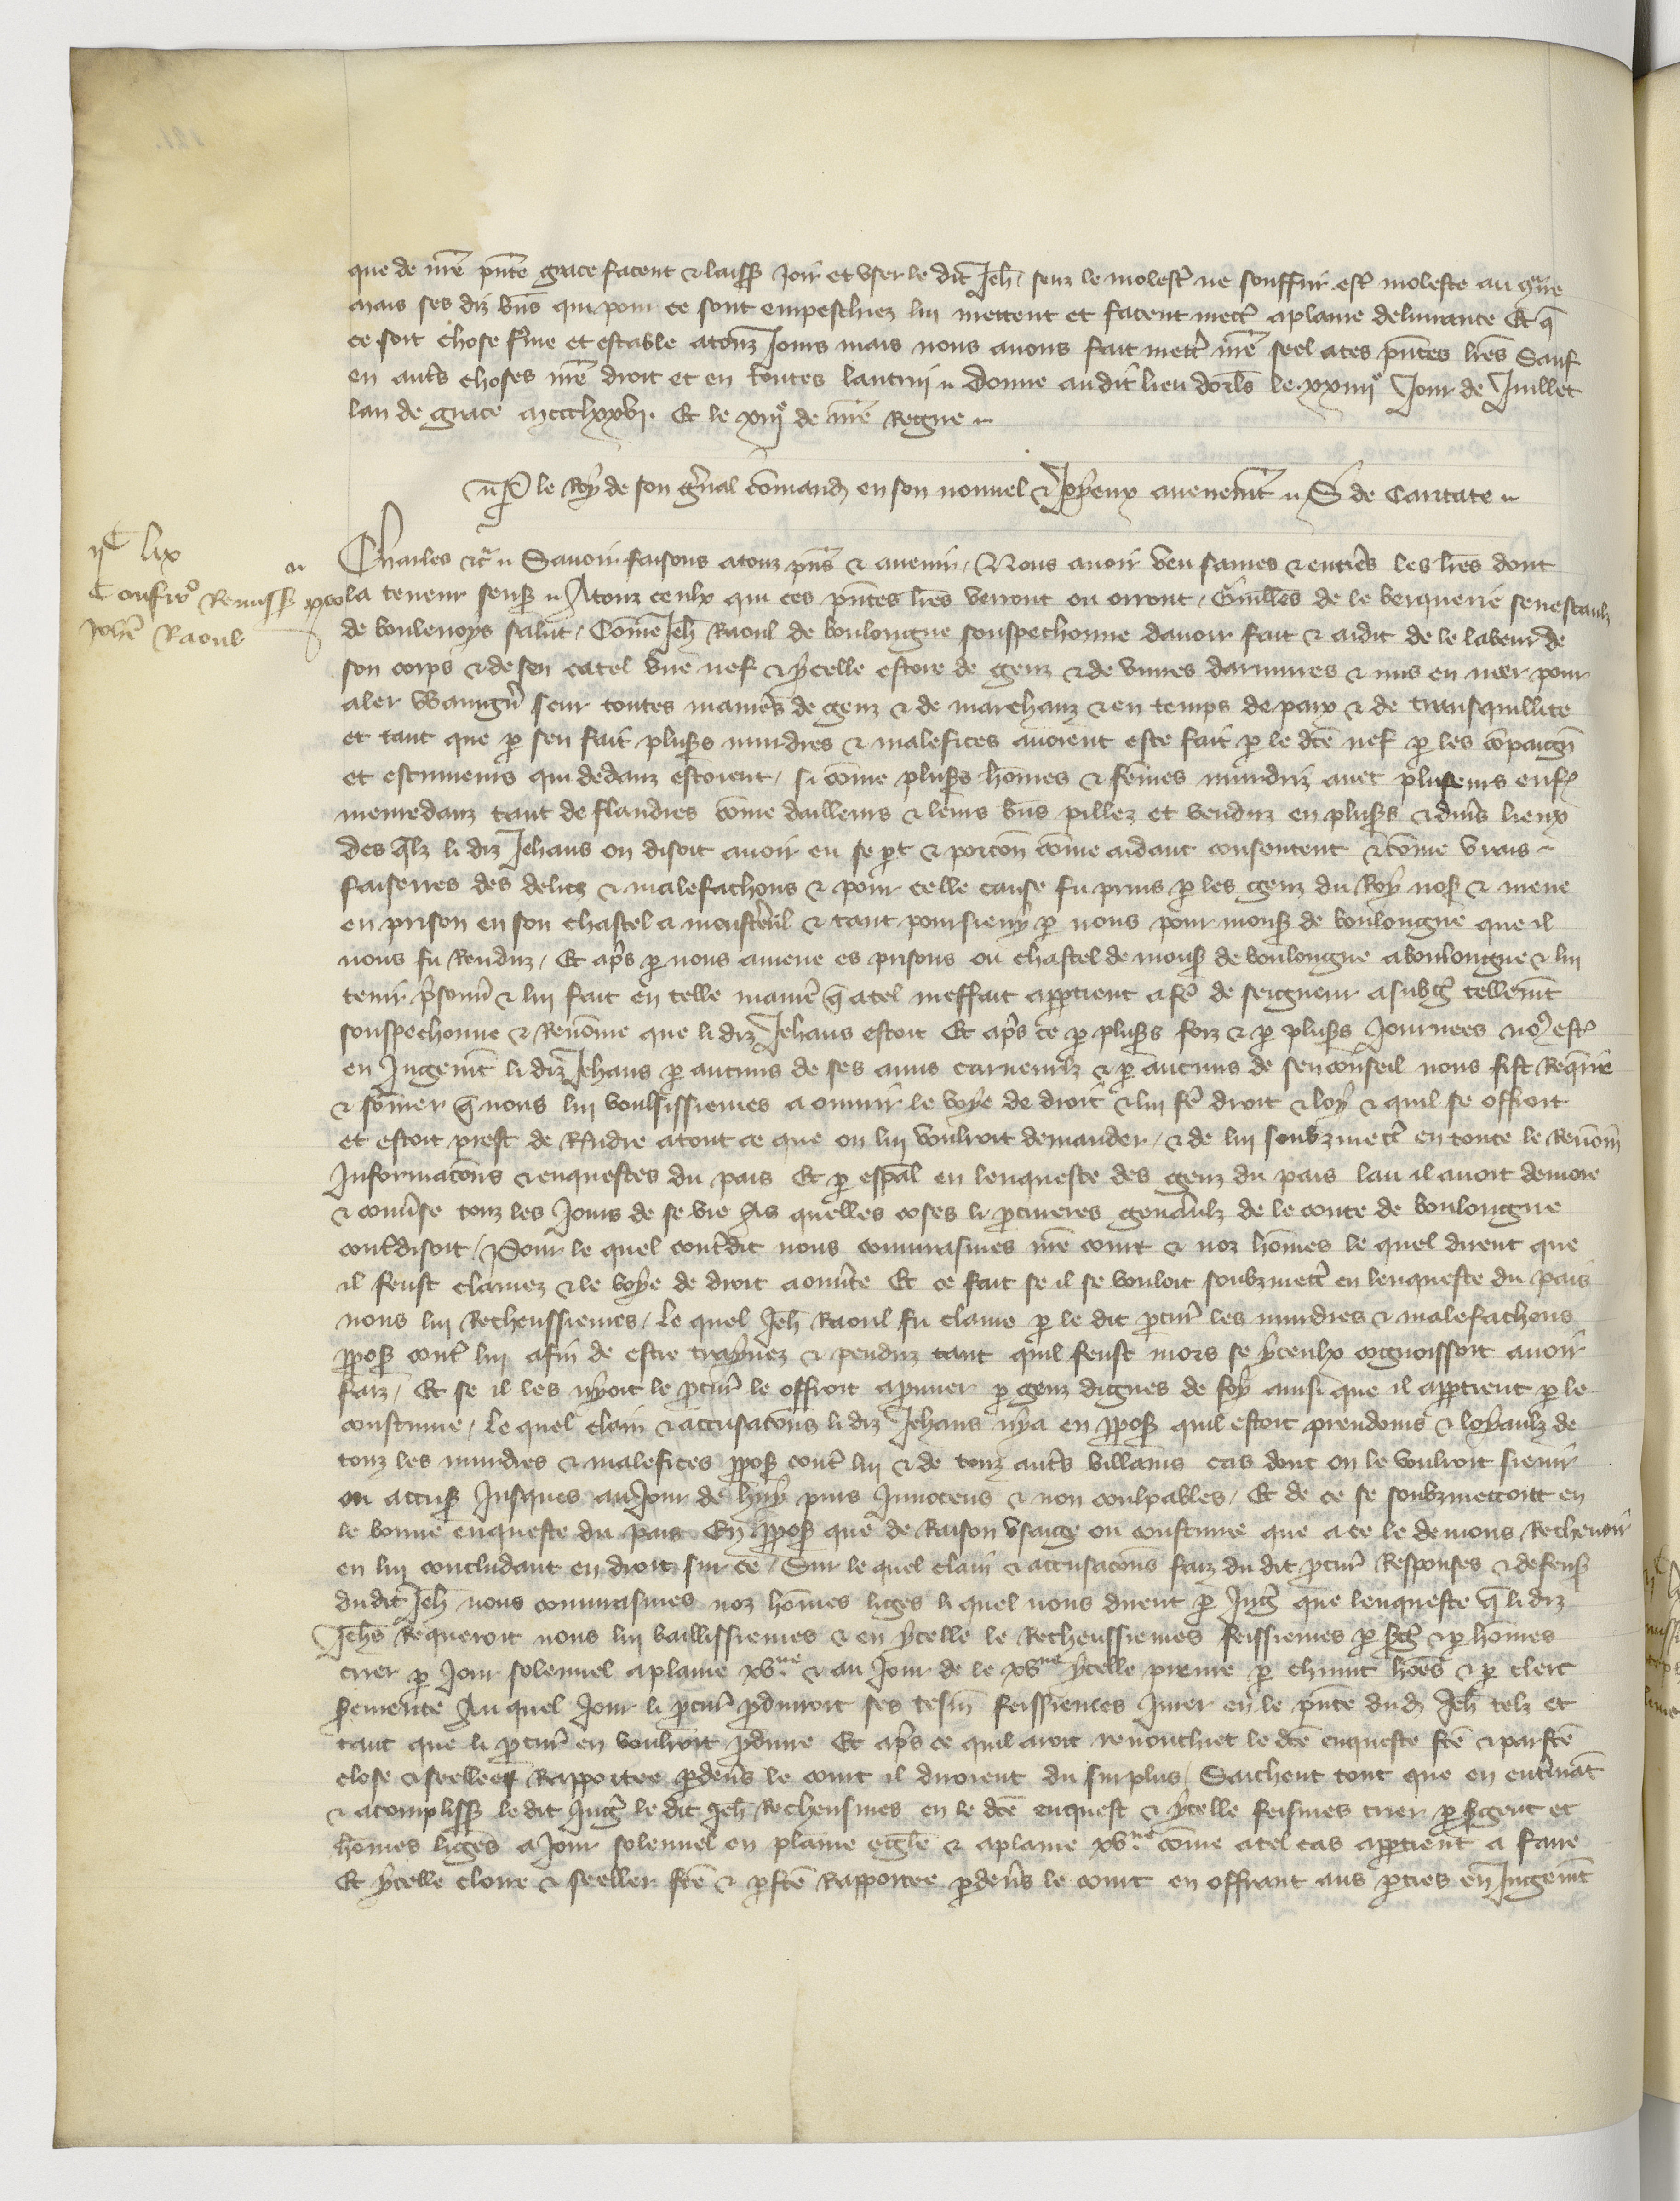 que de nre pnte grace facent & laissent Joir et user le dit Jeh. senz le molester ne souffrir estre moleste au gre
mais ses diz biens qui pour ce sont empeschiez lui mettent et facent mectre a plaine delivrance Et q
ce soit chose ferme et estable a touz Jours mais nous avons fait mettre nre seel a ces pntes lres Sauf
en autres choses nre droit et en toutes lautrui Donne au dit lieu dorls le xxiiii Jour de Juillet
lan de grace mccclxxvi. Et le xiii de nre Regne
P le Roy de son gnal comand en son nouvel & Joyeux avenement S de Caritate
iiC lix
Confirmo Remiss pro
Johe Raoul
Charles &c Savoir faisons a touz pns & avenir, Nous avoir veu saines & entieres les lres dont
la teneur sensuit A touz ceulx qui ces pntes lres verront ou orront, Guilles de le berquerie senescaulz
de boulenoys salut, Come Jeh Raoul de boulongne souspechonne davoir fait & aidit de le labeur de
son corps & de sen catel une nef & ycelle estore de genz & de vivres darmures & mis en meer pour
aler waingner seur toutes manieres de genz & de marchanz & en temps de paix & de transquillite
et tant que p sen fait pluss murdres & malefices avoient este fait p le dte nef p les compaign
et escumeurs qui dedanz estoient, si come pluss homes & femes murdriz avec pluseurs enfs
menredanz tant de flandres come dailleurs & leurs biens pillez et venduz en pluss & divers lieux
des qlz li diz Jehans on disoit avoir eu se part & porcon come aidant consentent & come vrais
faiserres des deliz & malefachons & pour celle cause fu prins p les genz du Roy nos & mene
en prison en son chastel a monsterul & tant poursievy p nous pour mons de boulongne que il
nous fu Renduz, Et aprs p nous amene es prisons ou chastel de mons de boulongne a boulongne & lui
tenir prsonnier & lui fait en telle maniere q a tel meffait apptient a fe de seigneur a subget tellement
souspechonne & Renome que li diz Jehans estoit Et aprs ce p pluss foiz & p pluss Journees nos est
en Jugemt li diz Jehans p aucuns de ses amis carneulz & p aucuns de sen conseil nous fist Requerre
& somer q nous lui voulsissiemes a ouvrir le voye de droit & lui fe droit & loy & quil se offroit
et estoit prest de Respondre a tout ce que on lui vouloit demander, & de lui soubzmectre en toute le Renome
Informacons & enquestes du pais Et p espal en lenqueste des genz du pais lau il avoit demore
& converse touz les Jours de se vie As quelles coses li procureres generaulz de le conte de boulongne
contredisoit, Pour le quel contredit nous conjurasmes nre court & noz homes le quel dirent que
il feust clamez & le voye de droit aouverte Et ce fait se il se vouloit soubzmectre en lenqueste du pais
nous lui Recheussiemes, Le quel Jeh Raoul fu clame p le dit pcur les murdres & malefachons
ppos contre lui afin de estre traynez & penduz tant quil feust mors se yceulx cognoissoit avoir
faiz, Et se il les nyoit le pcur le offroit a prouver p genz dignes de foy ainsi que il apptient p le
coustume, le quel claim & accusacons li diz Jehans nya en ppos quil estoit preudoms & loyaulz de
touz les murdres & malefices ppos contre lui & de touz autres villains cas dont on le vouloit sievir
ou accus Jusques au Jour de huy purs Innocens & non coulpables, Et de ce se soubzmettoitt en
le bonne enqueste du pais En ppos que de Raison usaige ou coustume que a ce le devions Rechevoir
en lui concludant en droit sur ce, Sur le quel claim & accusacons faiz du dit pcur Responses & defens
du dit Jeh nous conjurasmes noz homes liges li quel nous dirent p Jugt que lenqueste q li diz
Jehs Requeroit nous lui baillissiemes & en ycelle le Recheussiemes feissiemes p sgt & p homes
crier p Jour solennel a plaine xvne & au Jour de le xvne ycelle prenre p chincq homes & p clerc
sermente Au quel Jour li pcur pduiroit ses tesm feissiemes Jurer en le pnte dud Jeh telz et
tant que li pcur en vouldroit pduire Et aprs ce quil aroit renonchiet le dte enqueste fte & parfte
close & seellee Rapportee p devers le court il diroient du surplus, Saichent tout que en enterinant
& acompliss le dit Jugt le dit Jeh Recheusmes en le dte enquest & ycelle feismes crier p sgent et
homes liges a Jour solennel en plaine eglie & a plaine xvne come a tel cas apptient a faire
Et ycelle clorre & seeller fte & pfte Rapportee p devers le court en offrant aus pties en Jugemt